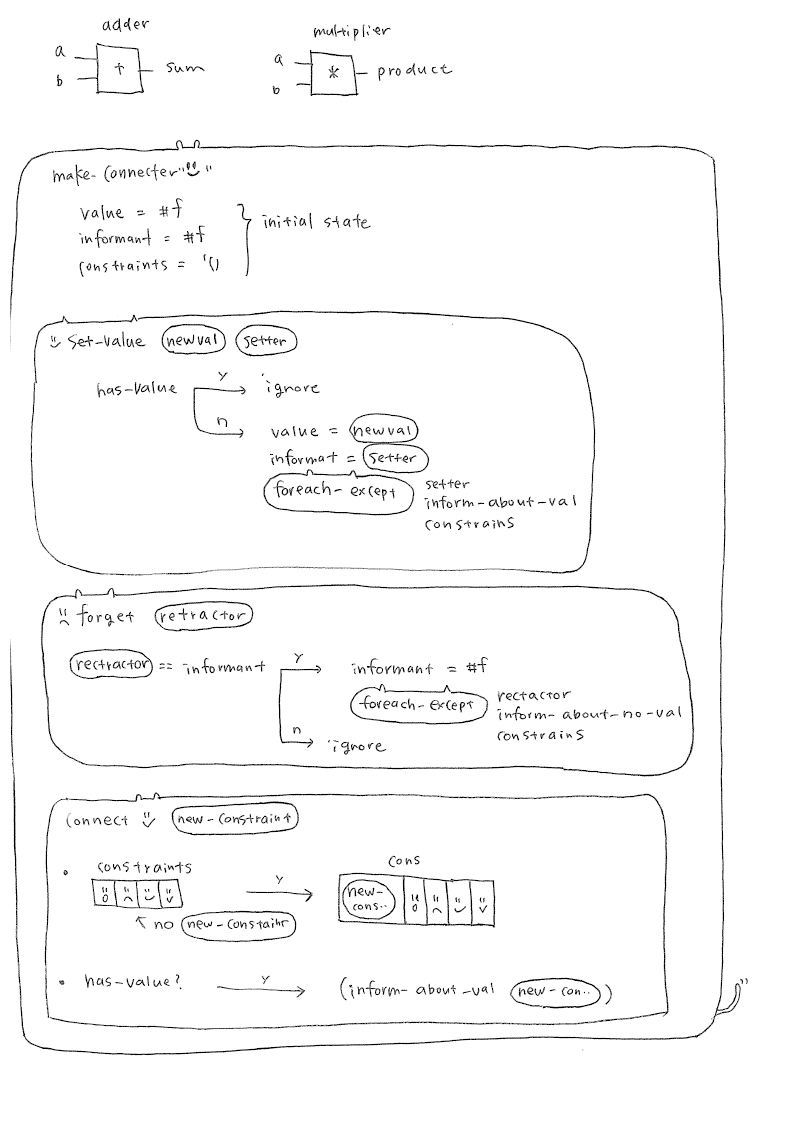 adder
a
b
+
sum
multiplier
a
b
*
product
make-connecter "
"
value = #f
informant = #f
constraints = '()
initial state
set-value newval setter
has-value
Y
ignore
n
value = newval
informat = setter
foreach-except setter
inform-about-val
constrains
forget retractor
rectractor == informant
Y
informant = #f
foreach-except rectactor
inform-about-no-val
constrains
n
ignore
connect new-constraint
constraints
no new-constaihr
Y
cons
new-
cons..
has-value?
Y
(inform-about-val new-con..)